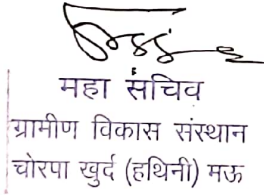 महा संचिव
ग्रामीण विकास संस्थान
चोरपा खुर्द (हथिनी) मऊ